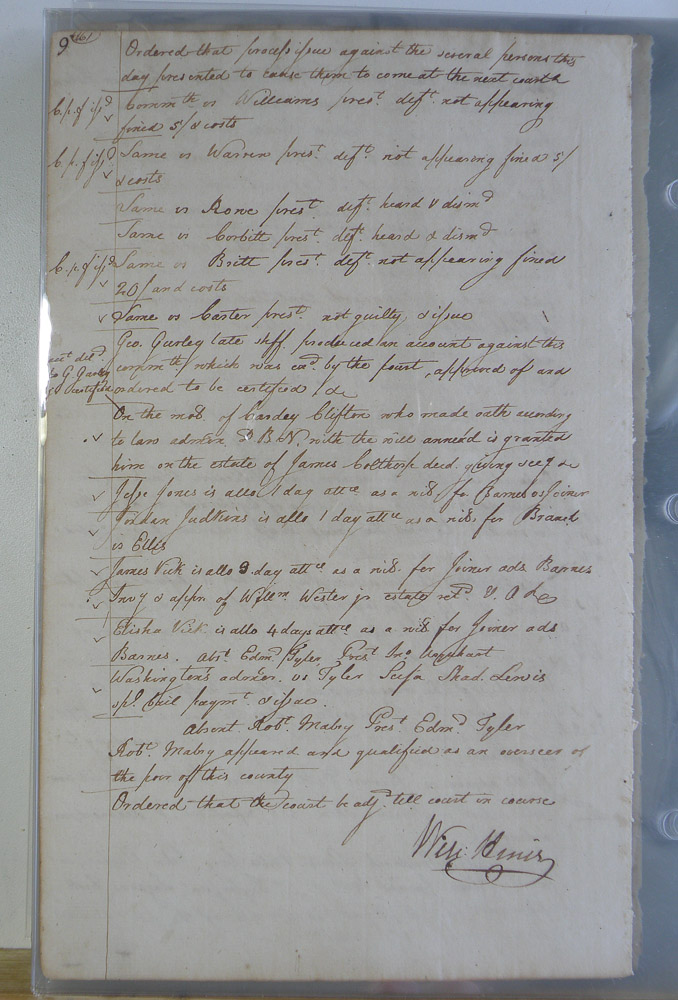 9
Ordered that process issue against the several persons this
day presented to cause them to come at the next court &
C. p. f issd
Commth vs Williams prest. deft. not appearing
fined 5/ & costs
C. p. f issd
Same vs Warren prest. deft. not appearing fined 5/
& costs
Same vs Rowe prest. deft. heard & dismd
Same vs Corbitt prest. deft. heard & dismd
C. p. f issd
Same vs Britt prest. deft. not appearing fined
20/ and costs
Same vs Carter prest. not guilty & issue
Geo. Gurley late shff. produced an account against this
G Gurley
commth / which was exd. by the Court, approved of and
certified
ordered to be certified / &c
On the mot. of Cardey Clifton who made oath according
to law admin D B N, with the will annex'd is granted
him on the estate of James Colthorp decd. giving secy &c
Jesse Jones is allo 1 day attce as a wit. for Barnes vs Joiner
Jordan Judkins is allo 1 day attce as a wit. for Branch
vs Ellis
James Vick is allo 3 day attce as a wit. for Joiner ads Barnes
Invy & appr. of Willm. Wester jr estate retd. & O R
Elisha Vick is allo 4 days attce as a wit. for Joiner ads
Barnes. abst. Edmd. Tyler Prest Jno. Urquhart
Washington's admor. vs Tyler Shad. Lewis
spl. bail paymt. & issue.
absent Robt. Mabry Prest. Edmd. Tyler
Robt. Mabry appeared and qualified as an overseer of
the poor of this county
Ordered that the court be adj. till court in course